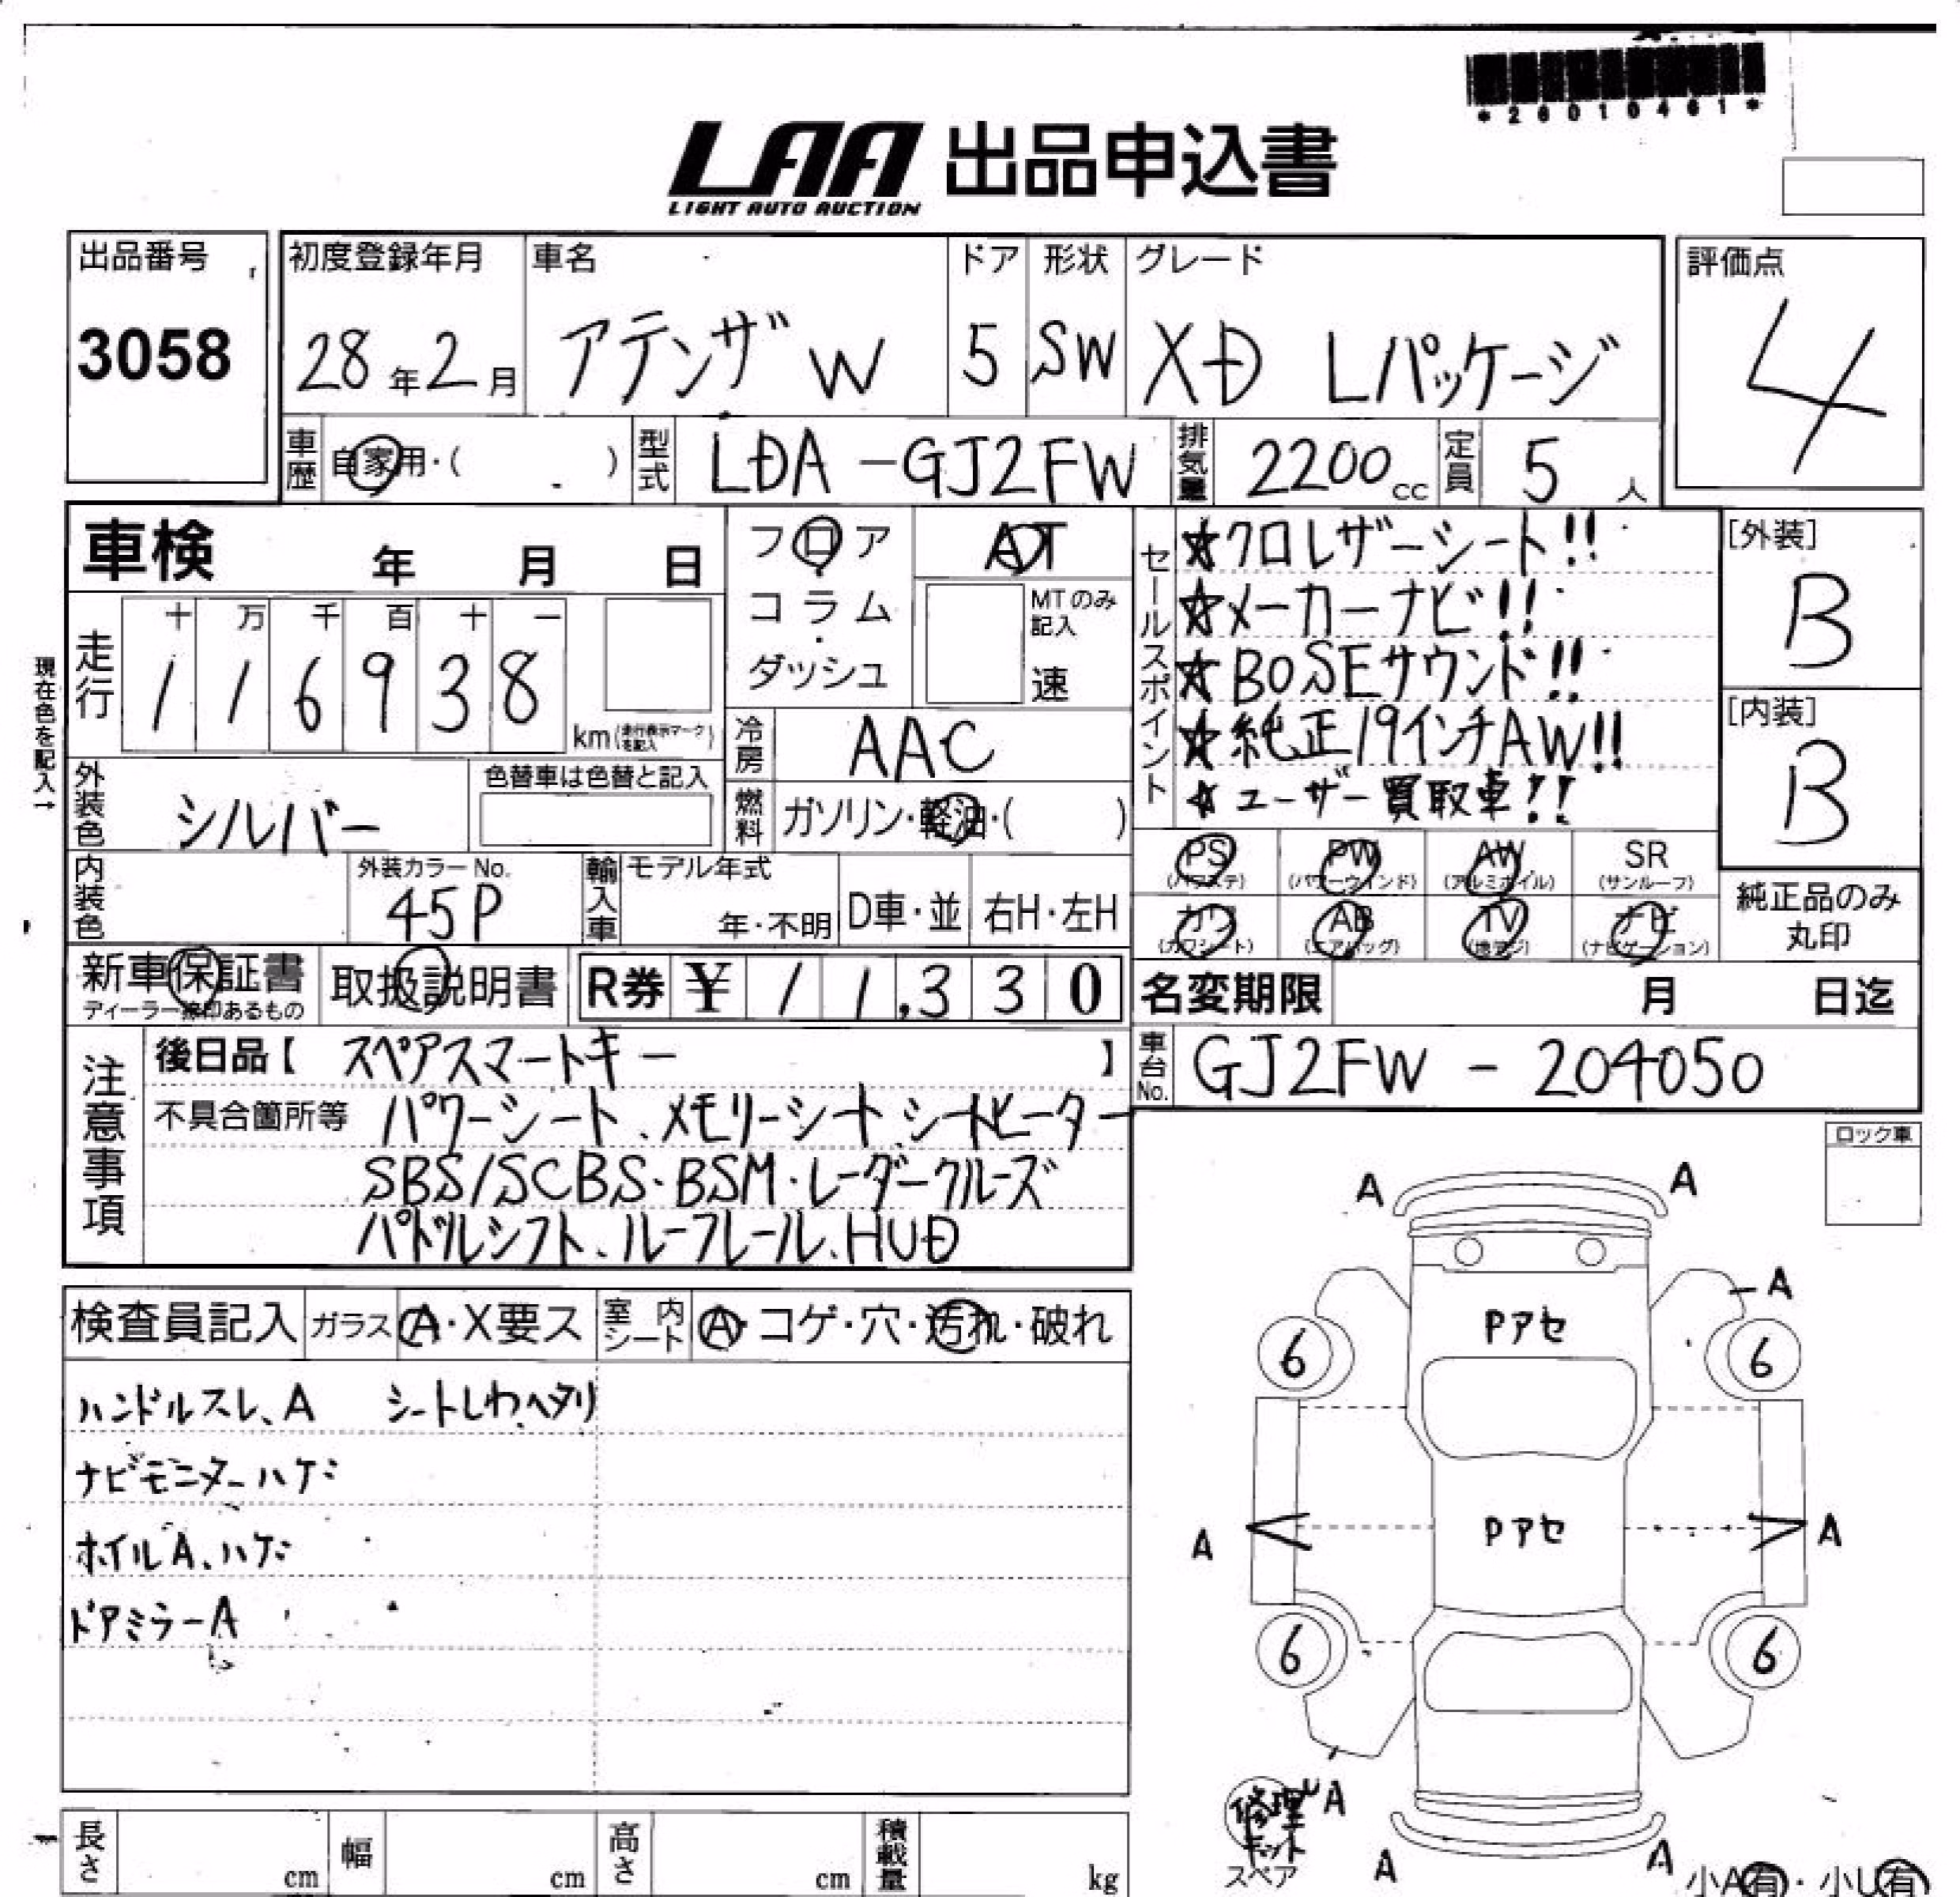 *26010461*
LAA 出品申込書
LIGHT AUTO AUCTION
出品番号
3058
初度登録年月
28年2月
車名
アテンザ W
ドア
5
形状
SW
グレード
XD Lパッケージ
評価点
4
車歴 自家用・( )
型式 LDA-GJ2FW
排気量 2200cc
定員 5人
車検 年 月 日
フロア・コラム・ダッシュ
AT
MTのみ記入
速
セールスポイント
☆クロレザーシート!!
☆メーカーナビ!!
☆BOSEサウンド!!
☆純正19インチAW!!
☆ユーザー買取車!!
[外装]
B
[内装]
B
現在色を記入→
走行
十 万 千 百 十 一
1 1 6 9 3 8
km(走行表示マークを記入)
冷房 AAC
外装色 シルバー
色替車は色替と記入
燃料 ガソリン・軽油・( )
内装色
外装カラーNo.
45P
輸入車
モデル年式
年・不明
D車・並
右H・左H
PS (パワステ)
PW (パワーウインド)
AW (アルミホイル)
SR (サンルーフ)
カワ (カワシート)
AB (エアバッグ)
TV (地デジ)
ナビ (ナビゲーション)
純正品のみ
丸印
新車保証書
ディーラー捺印あるもの
取扱説明書
R券 ¥ 11,330
名変期限 月 日迄
注意事項
後日品【 スペアスマートキー 】
不具合箇所等 パワーシート、メモリーシート、シートヒーター
SBS/SCBS・BSM・レーダークルーズ
パドルシフト、ルーフレール、HUD
車台No. GJ2FW - 204050
ロック車
検査員記入
ガラス A・X要ス
室内シート A・コゲ・穴・汚れ・破れ
ハンドルスレ、A シートしわヘタリ
ナビモニターハゲ
ホイルA、ハゲ
ドアミラーA
A A
A
Pアセ
6 6
Pアセ
A A
6 6
A
修理キット
スペア
A A
小A有・小U有
長さ cm
幅 cm
高さ cm
積載量 kg